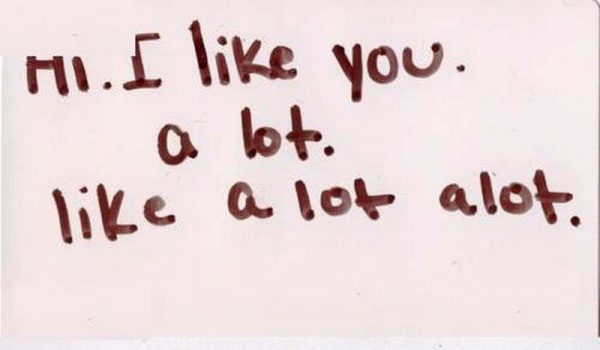 Hi. I like you.
a lot.
like a lot alot.